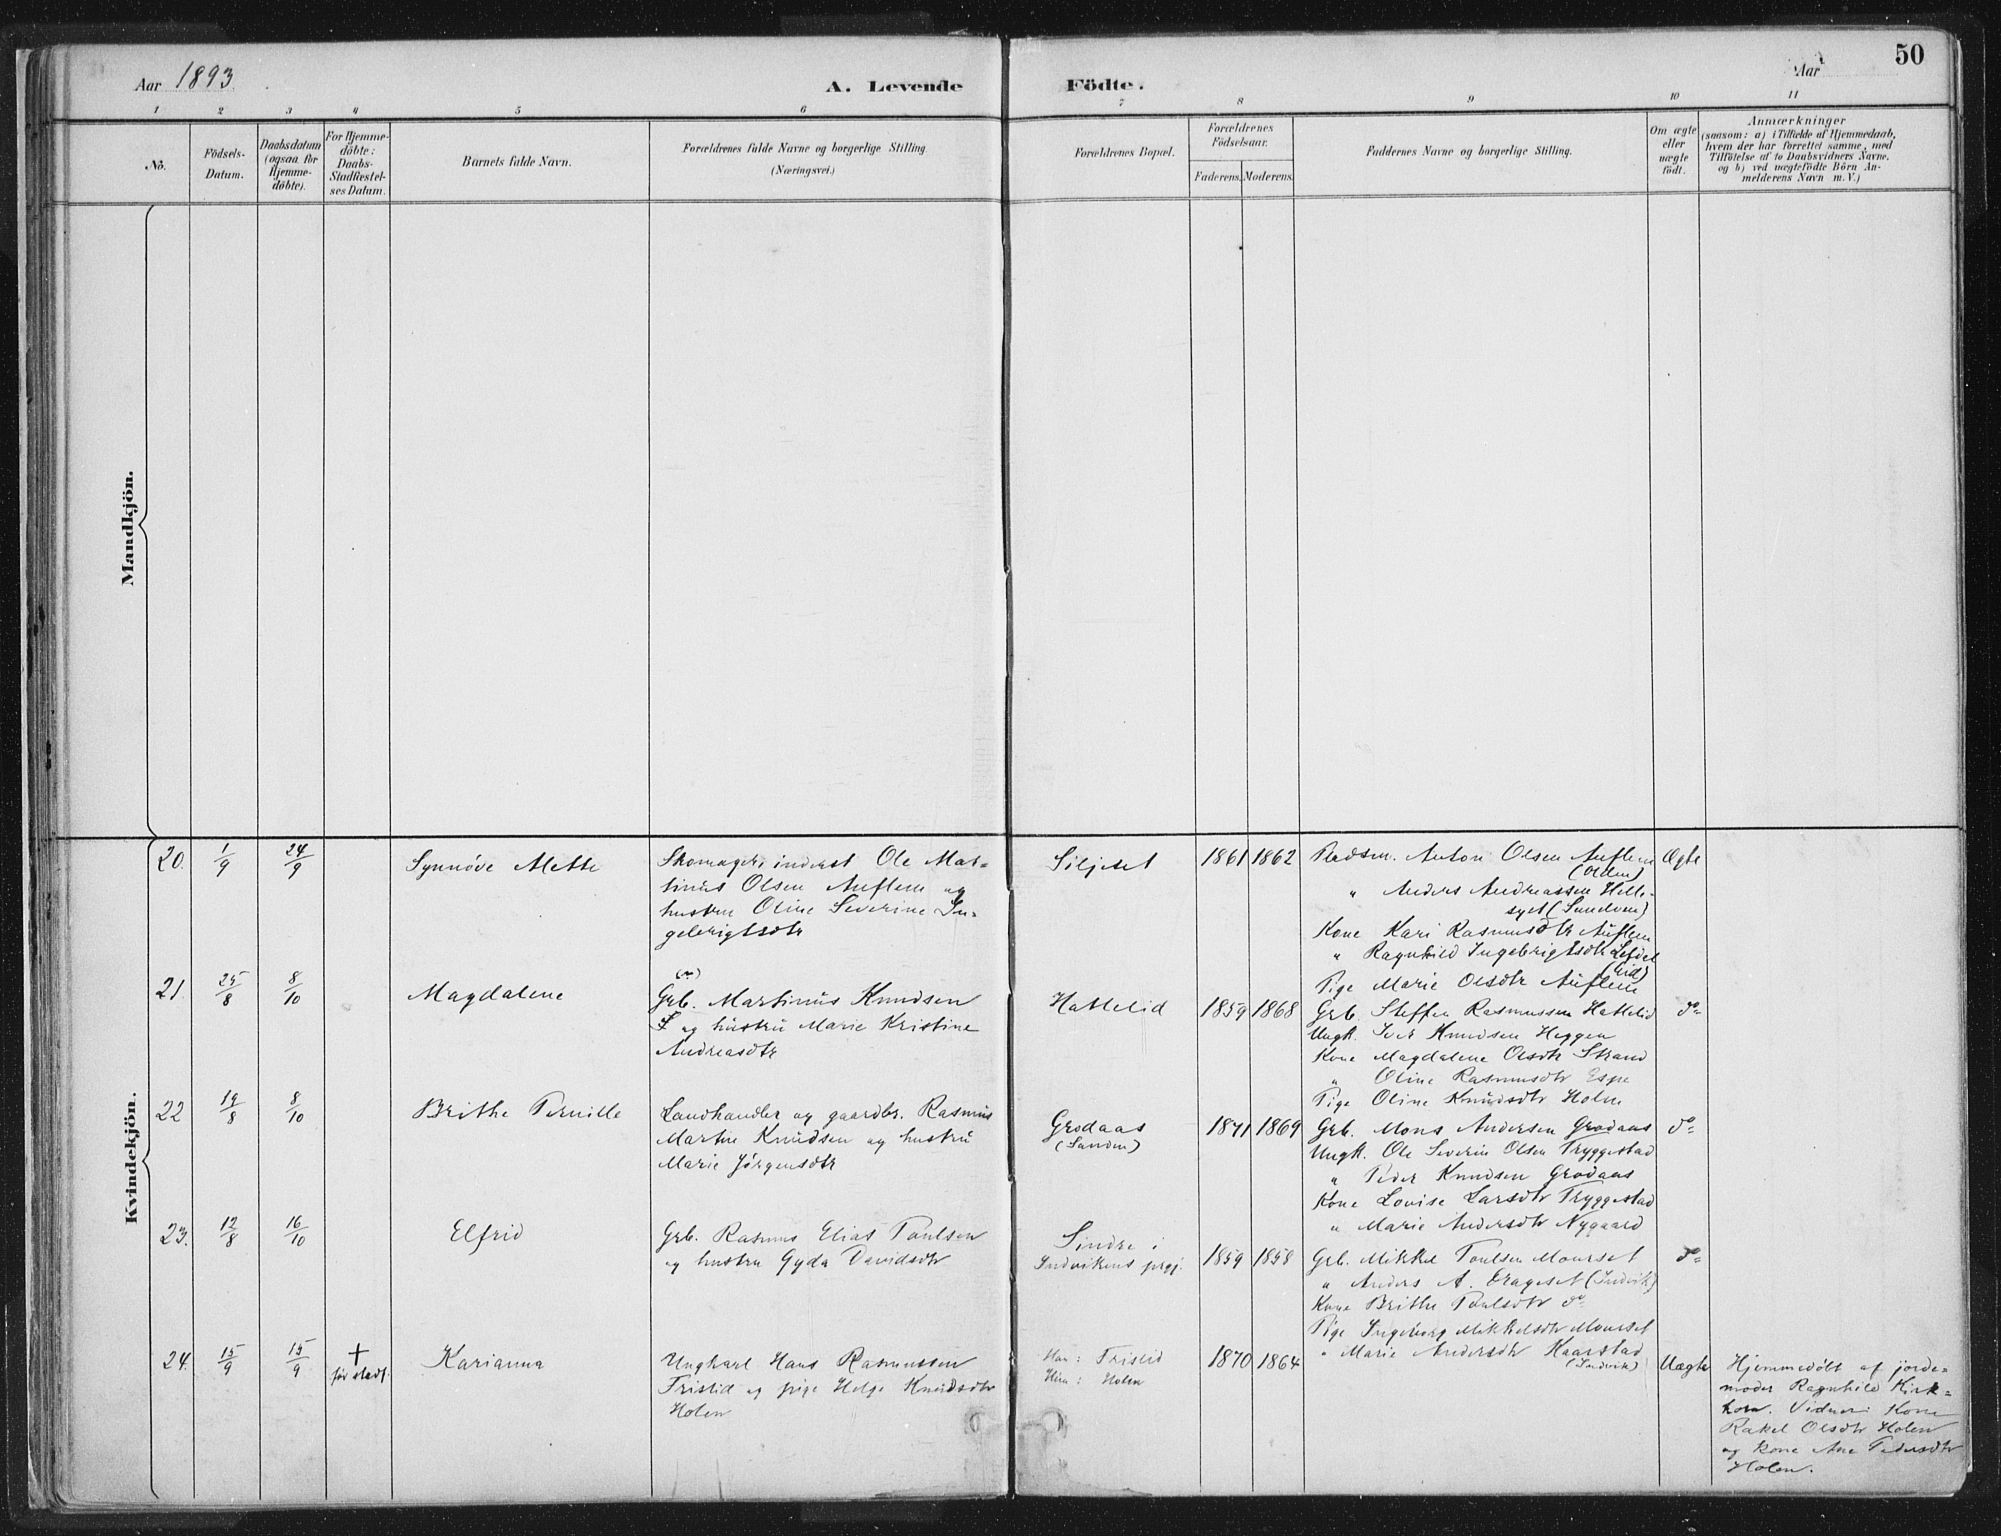 50
Aar 1893.
A. Levende Födte.
Aar
1 2 3 4 5 6 7 8 9 10 11
No.
Födsels-Datum.
Daabsdatum (ogsaa for Hjemme-døbte).
For Hjemme-døbte: Daabs-Stadfæstel-ses Datum.
Barnets fulde Navn.
Forældrenes fulde Navne og borgerlige Stilling. (Næringsvei.)
Forældrenes Bopæl.
Forældrenes Födselsaar.
Faderens. Moderens.
Faddernes Navne og borgerlige Stilling.
Om ægte eller uægte födt.
Anmærkninger
(saasom: a) i Tilfælde af Hjemmedaab,
hvem der har forrettet samme, med
Tilföielse af to Daabsvidners Navne,
og b) ved uægtefödte Börn An-
melderens Navn m. V.)
Mandkjön.
Kvindekjön.
20. 1/9 24/9 Synnöve Mette
Skomager, inderst Ole Mar-
tinus Olsen Auflem og
hustru Oline Severine In-
gebrigtsdtr
Siljeset 1861 1862
Pladsm. Anton Olsen Auflem
(Olden)
" Anders Andreassen Helle-
syet (Sundven)
Kone Kari Rasmusdtr Auflem
" Ragnhild Ingebrigtsdtr Lefdal
(Eid)
Pige Marie Olsdtr Auflem
Ægte
21. 25/8 8/10 Magdalene
Grb. Martinus Knudsen
S og hustru Marie Kristine
Andreasdtr
Hattelid 1859 1868
Grb. Steffen Rasmussen Hattelid
Ungk. Iver Knudsen Heggen
Kone Magdalene Olsdtr Strand
" Oline Rasmusdtr Espe
Pige Oline Knudsdtr Holen
do
22 19/8 8/10 Brithe Pernille
Landhandler og gaardbr. Rasmus
Martin Knudsen og hustru
Marie Jörgensdtr
Grodaas
(Sanden)
1871 1869
Grb. Mons Andersen Grodaas
Ungk. Ole Severin Olsen Tryggestad
" Peder Knudsen Grodaas
Kone Lovise Larsdtr Tryggestad
" Marie Andersdtr Nygaard
do
23. 12/8 16/10 Elfrid
Grb. Rasmus Elias Paulsen
og hustru Gyda Davidsdtr
Sindre i
Indvikens prgj.
1859 1858
Grb. Mikkel Paulsen Mourset
" Anders A. Drageset (Indvik)
Kone Brithe Paulsdtr do
Pige Ingeborg Mikkelsdtr Mourset
" Marie Andersdtr Haarstad
(Indvik)
do
24. 15/9 15/9 + før stadf. Karianna
Ungkarl Hans Rasmussen
Tristid og pige Helge Knudsdtr
Holen
Han: Tristid
Hun: Holen
1870 1864
Uægte
Hjemmedöbt af jorde-
moder Ragnhild Kirk-
horn. Vidner: Kone
Rakel Olsdtr Holen
og kone Ane Pedersdtr
Holen.